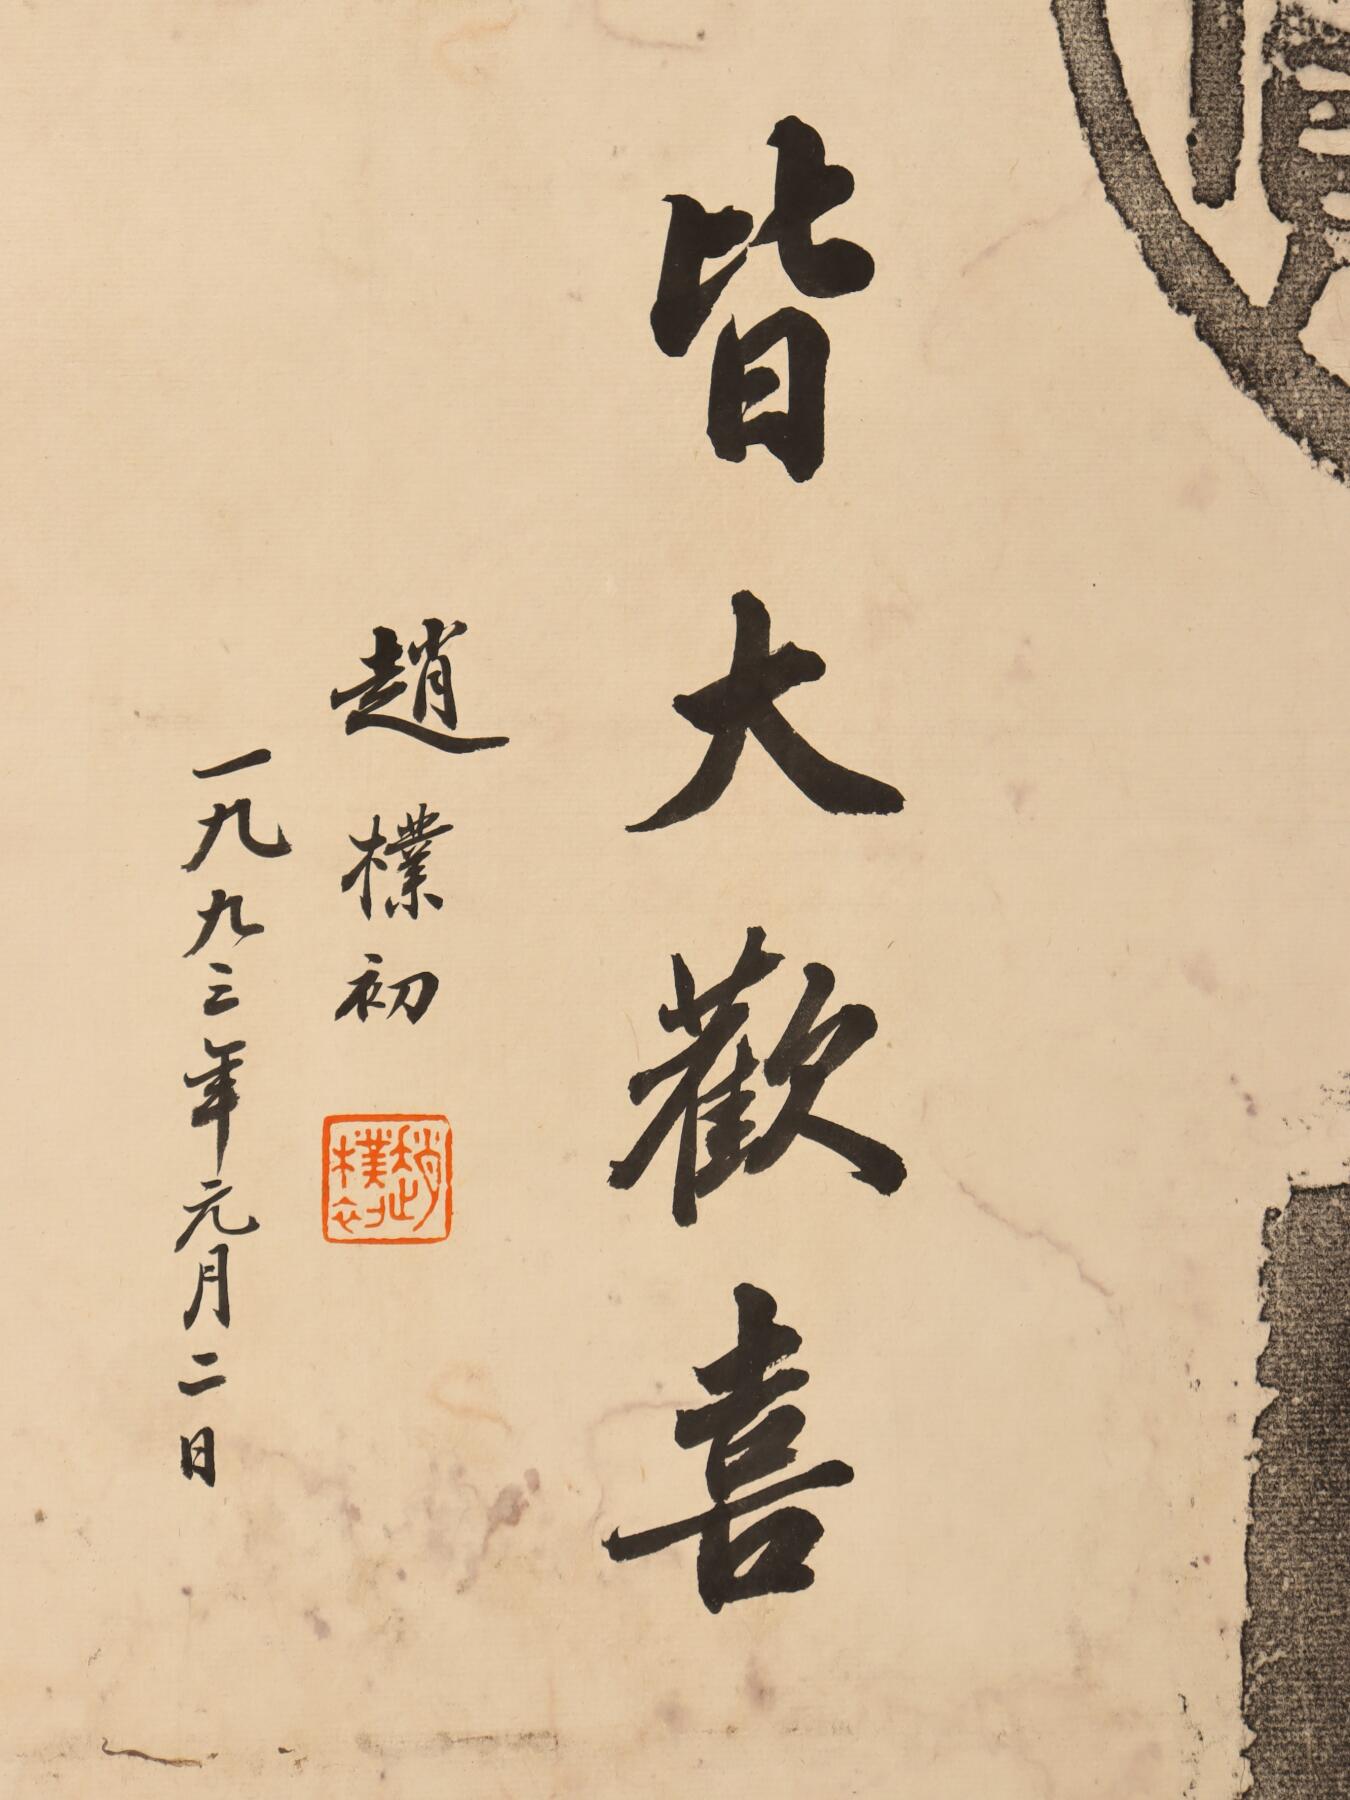 皆大歡喜
趙樸初
一九九三年元月二日
趙樸初